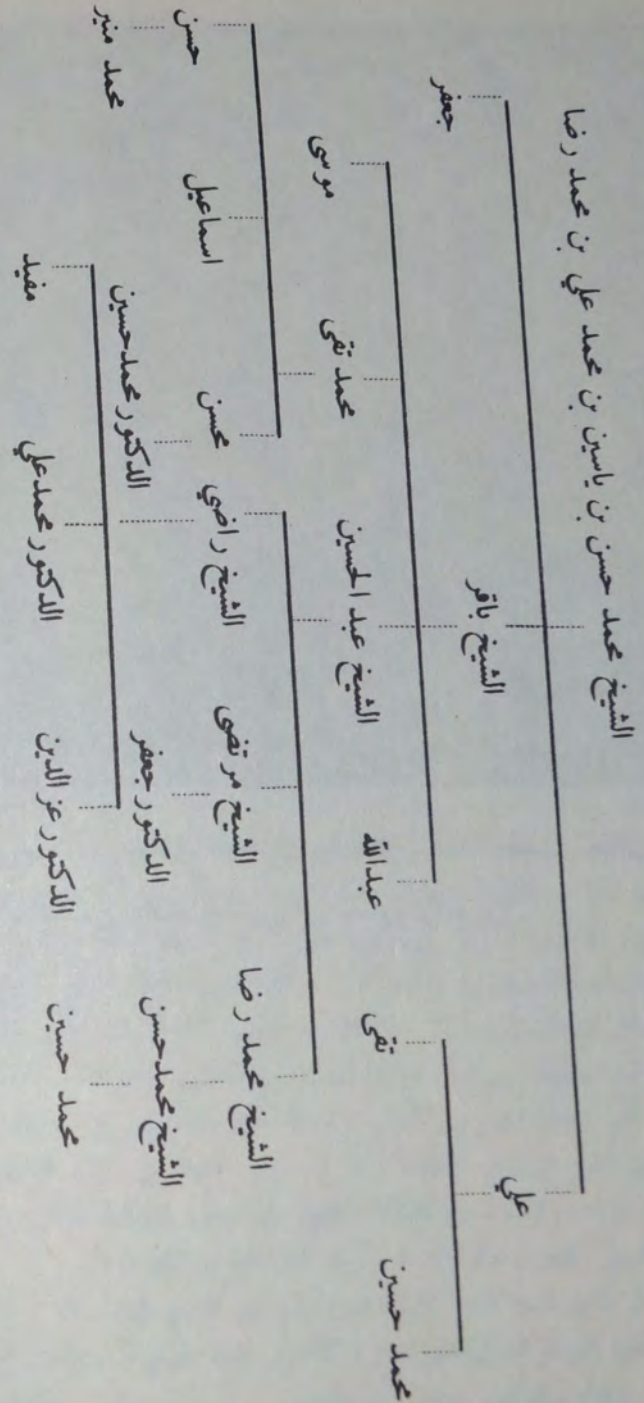 الشيخ محمد حسن بن ياسين بن محمد علي بن محمد رضا
علي
الشيخ باقر
جعفر
محمد حسين
تقى
عبدالله
الشيخ عبد الحسين
محمد تقى
موسى
الشيخ محمد رضا
الشيخ مرتضى
الشيخ راضي
محسن
اسماعيل
حسن
الشيخ محمد حسن
الدكتور جعفر
الدكتور محمد حسين
محمد منير
محمد حسين
الدكتور عز الدين
الدكتور محمد علي
مفيد